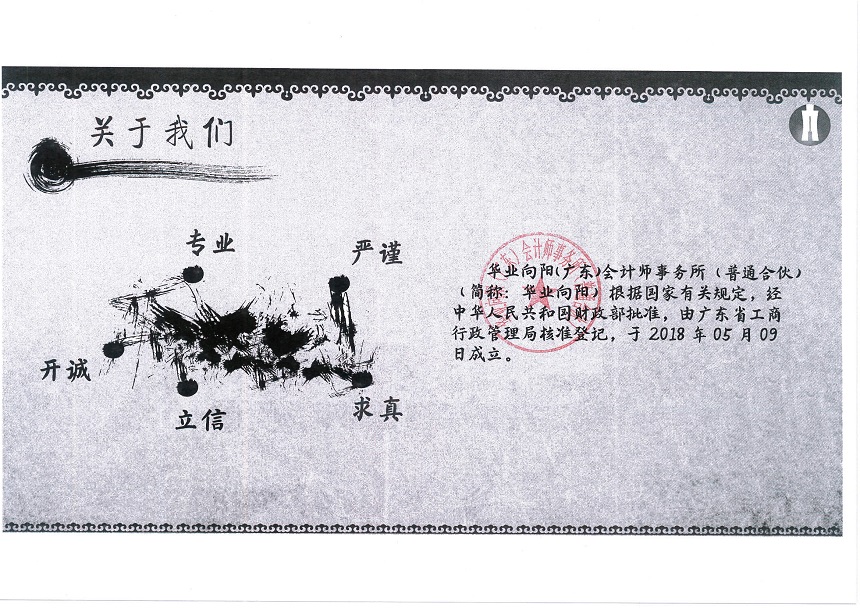 关于我们
专业
严谨
开诚
立信
求真
华业向阳(广东)会计师事务所（普通合伙）
（简称：华业向阳）根据国家有关规定，经
中华人民共和国财政部批准，由广东省工商
行政管理局核准登记，于 2018 年 05 月 09
日成立。
东）会计师事务所